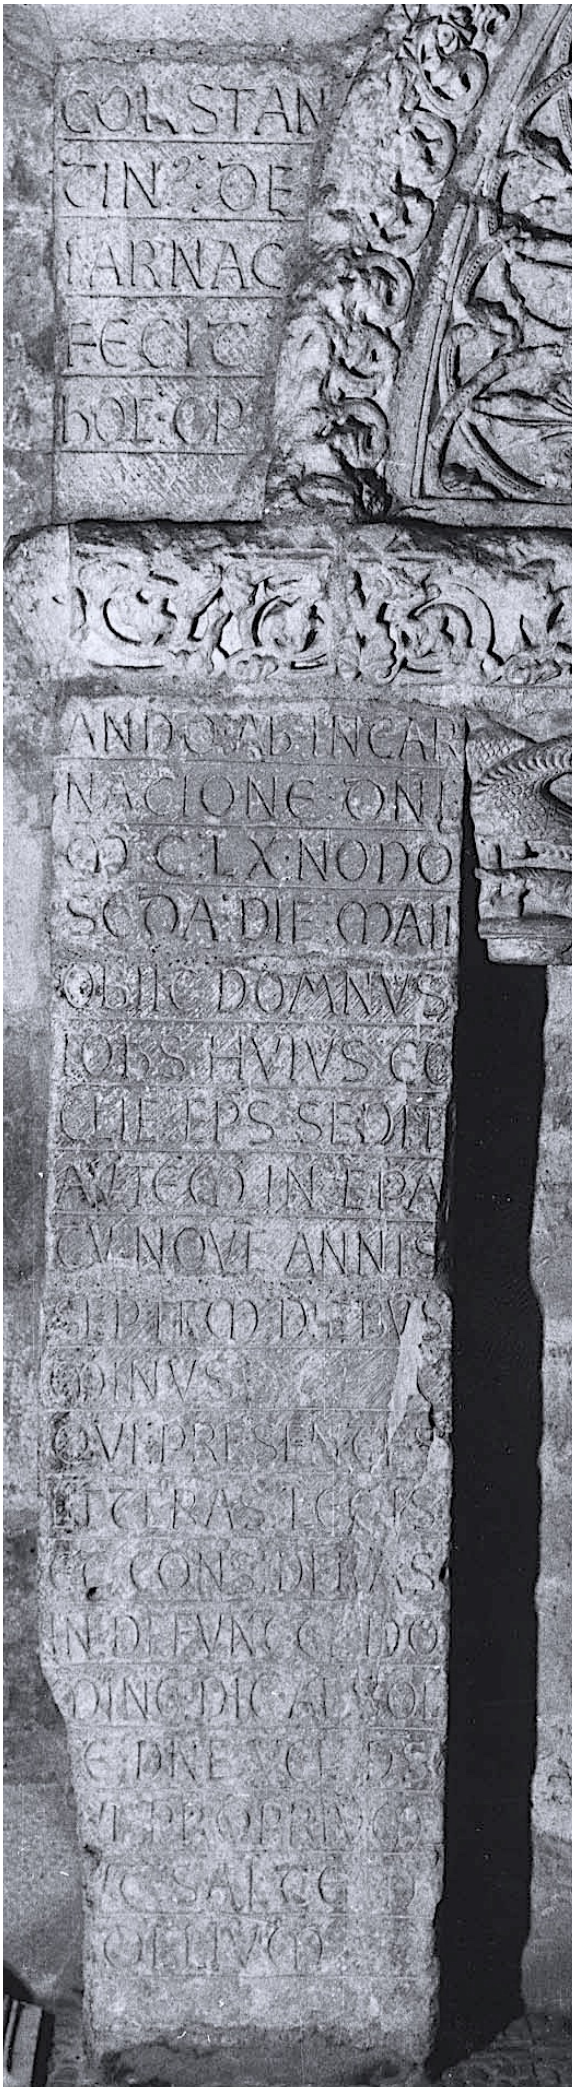 CONSTAN
TIN9 : DE
IARNAC
FECIT
hOC : OP
ANNO : Ab INCAR
NACIONE : DNI
M : C : LX : NONO
SCDA : DIE : MAII
OBIIT DOMNVS
IOhS HVIVS EC
CLIE EPS SEDIT
AVTEM IN EPA
TV NOVE ANNIS
SEPTEM DIEBVS
MINVS
QVI PRESENTES
LITTERAS LEGIS
ET CONSIDERAS
IN DEFVNCTI
DIC ABSOL
E DNE VEL DS
VI PROPRIVM
VT SALTE
OLLIVM